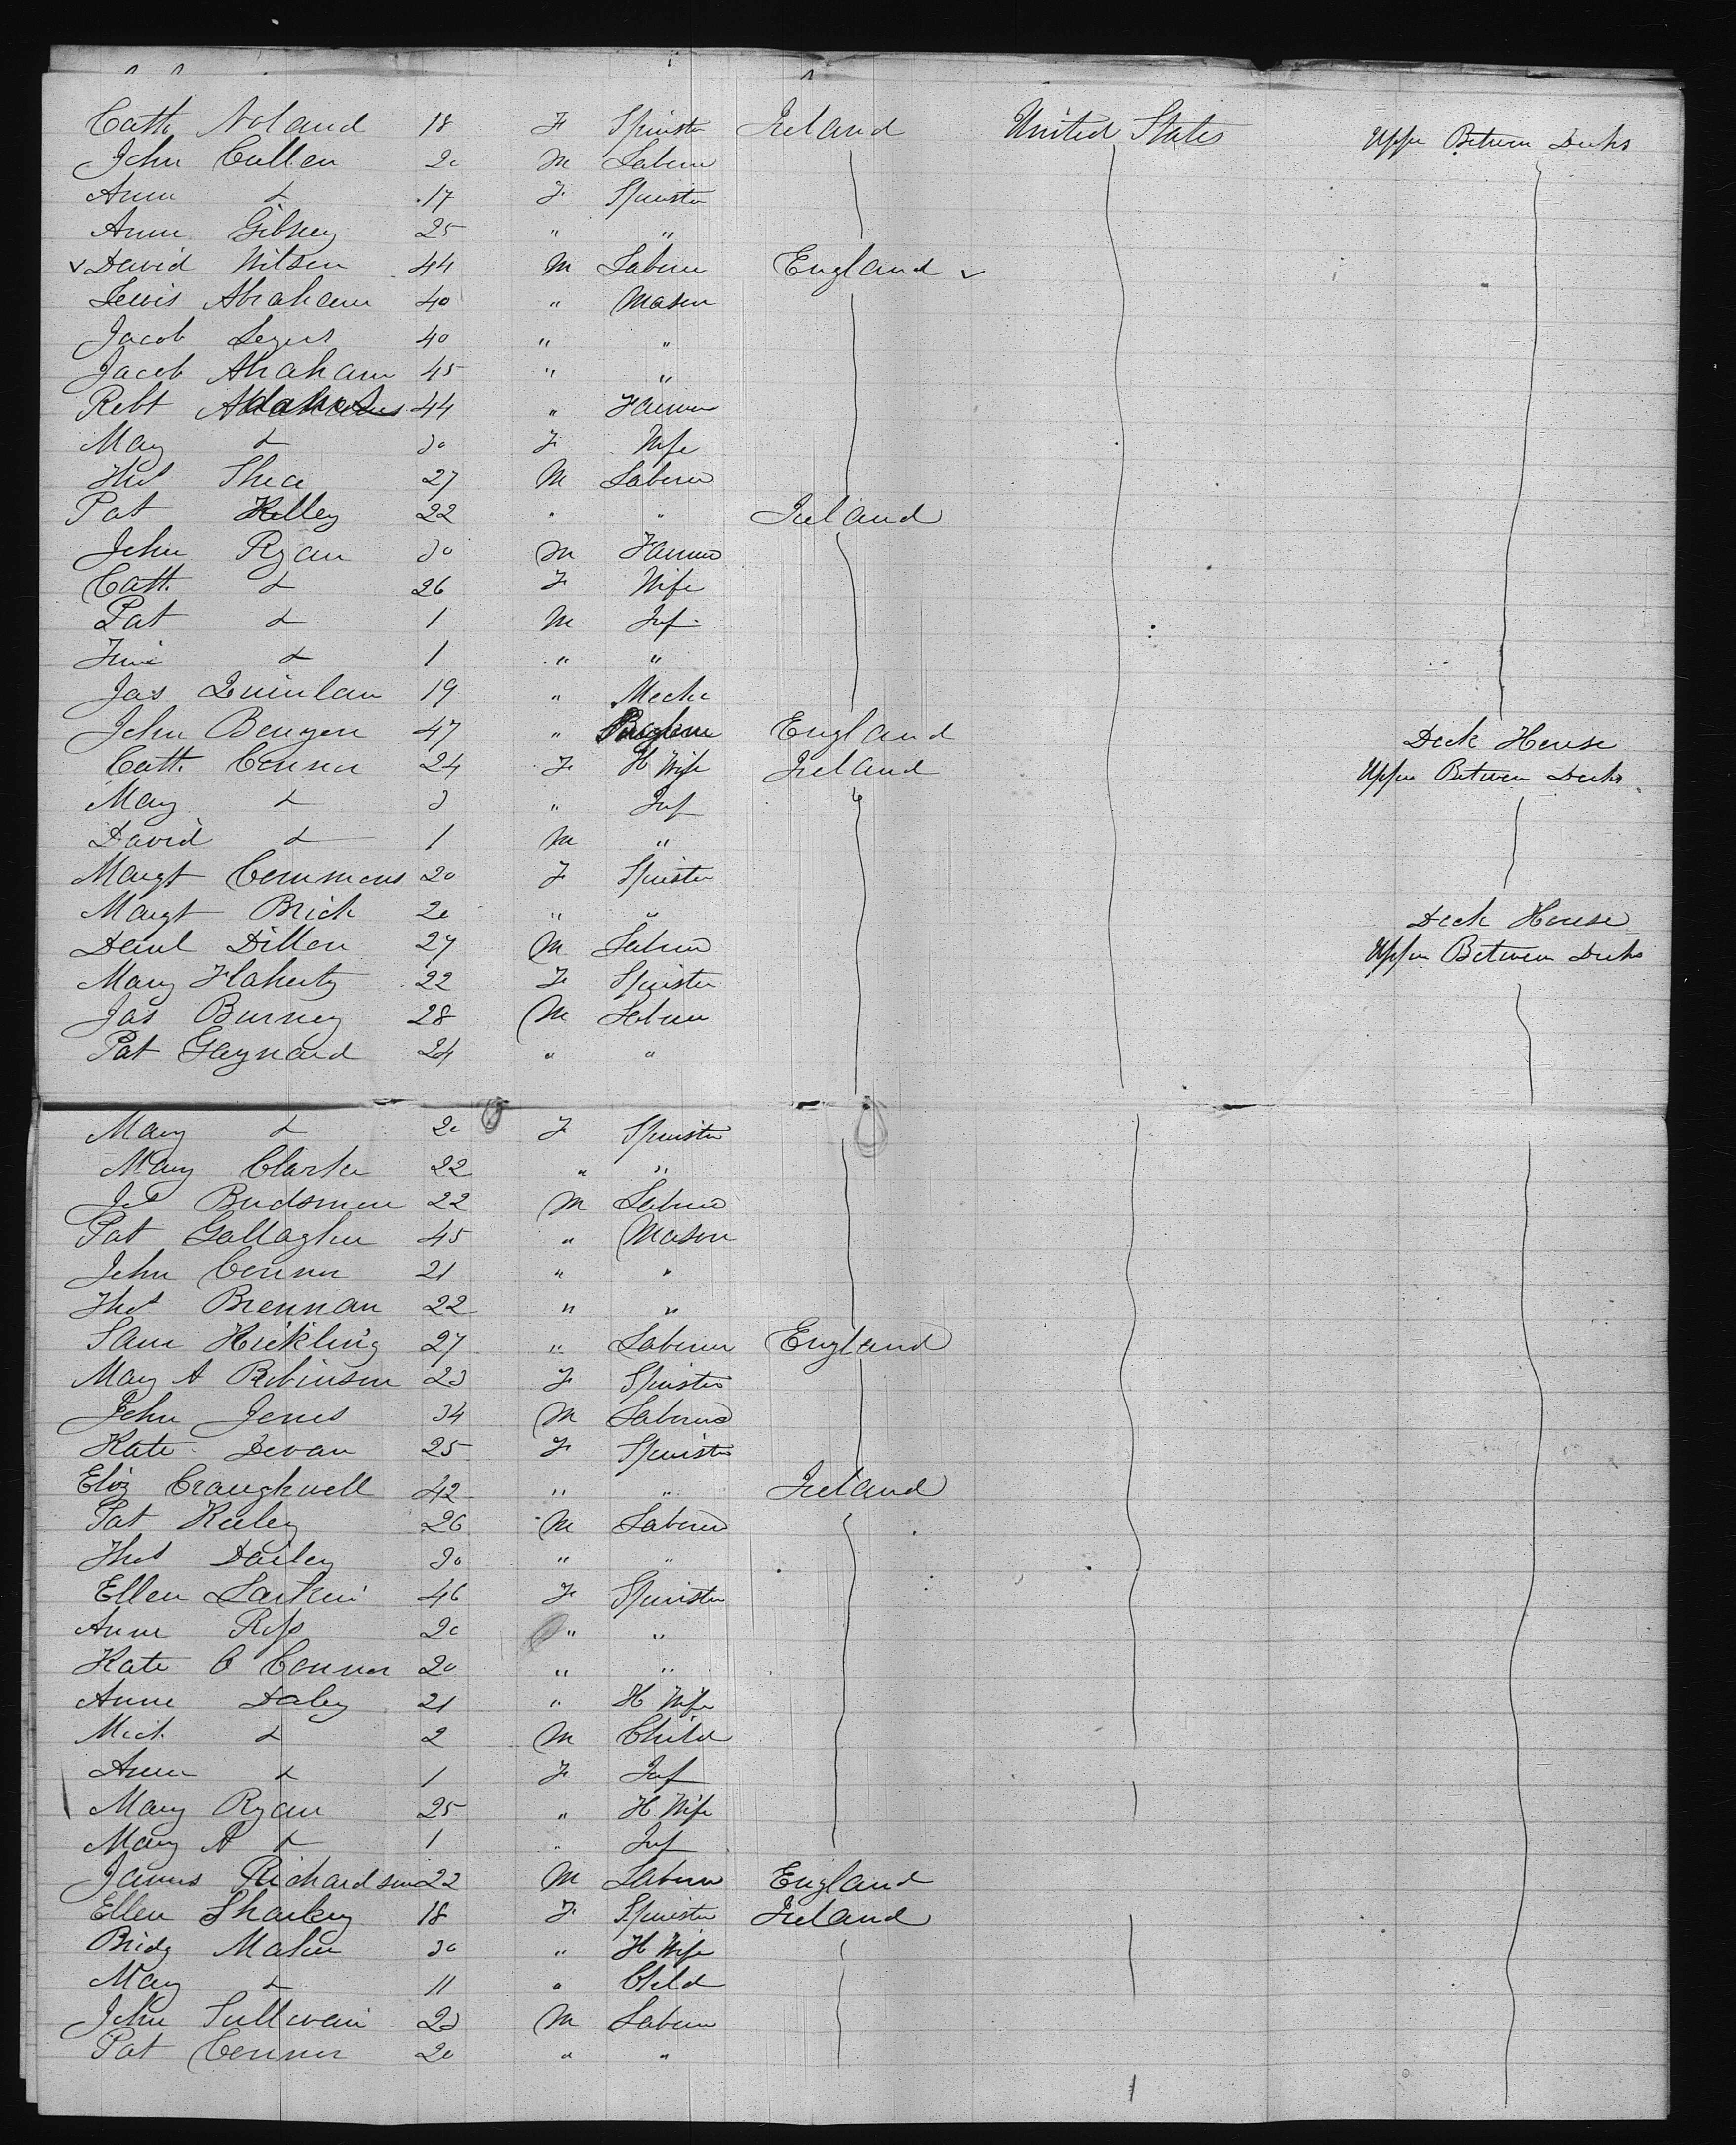 Cath Noland 18 F Spinster Ireland United States Upper Between Decks
John Cullen 20 M Laborer
Ann d 17 F Spinster
Anne Gibney 25 " "
v David Wilson 44 M Laborer England v
Lewis Abraham 40 " Mason
Jacob 40 " "
Jacob Abraham 45 " "
Robt 44 " Farmer
Mary d 30 F Wife
Thos Shea 27 M Laborer
Pat Kelley 22 " " Ireland
John Ryan 30 M Farmer
Cath d 26 F Wife
Pat d 1 M Inf
d 1 " "
Jas Quinlan 19 " Mechc
John 47 " England Deck House
Cath Connor 24 F H Wife Ireland Upper Between Decks
Mary d 3 " Inf
David d 1 M "
Margt Commons 20 F Spinster
Margt Brick 20 " " Deck House
Danl Dillon 27 M Laborer Upper Between Decks
Mary Flaherty 22 F Spinster
Jas Burney 28 M Laborer
Pat Gaynard 24 " "
Mary d 20 F Spinster
Mary Clarke 22 " "
22 M Laborer
Pat Gallagher 45 " Mason
John Connor 21 " "
Thos Brennan 22 " "
Sam Hickling 27 " Laborer England
Mary A Robinson 23 F Spinster
John Jones 34 M Laborer
Kate Devan 25 F Spinster
Eliz Craughwell 42 " " Ireland
Pat Keeley 26 M Laborer
Thos Dailey 30 " "
Ellen Larkin 46 F Spinster
Anne Ross 20 " "
Kate O Connor 20 " "
Anne Daley 21 " H Wife
Mich d 2 M Child
Ann d 1 F Inf
Mary Ryan 25 " H Wife
Mary A d 1 " Inf
James Richardson 22 M Laborer England
Ellen Sharkey 18 F Spinster Ireland
Bridg Maher 30 " H Wife
Mary d 11 " Child
John Sullivan 23 M Laborer
Pat Connor 20 " "